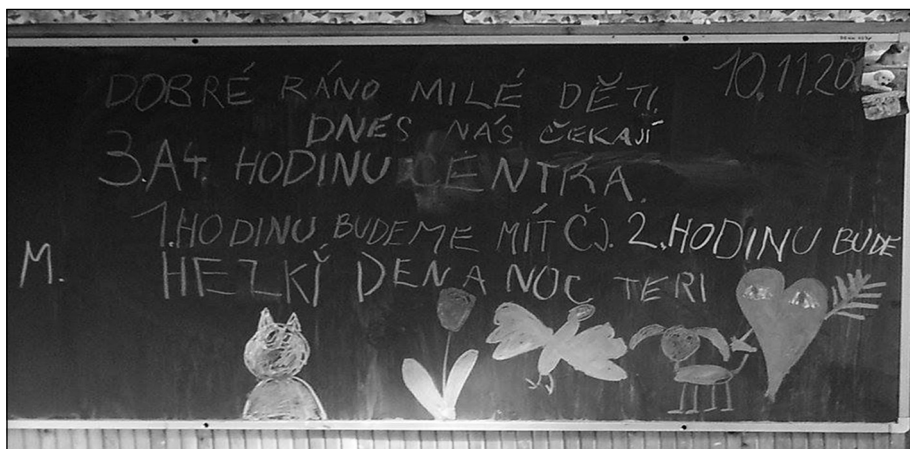 10.11.20
DOBRÉ RÁNO MILÉ DĚTI.
DNES NÁS ČEKAJÍ
3.A4. HODINU CENTRA.
1.HODINU BUDEME MÍT ČJ. 2.HODINU BUDE
M.
HEZKÍ DEN A NOC TERI